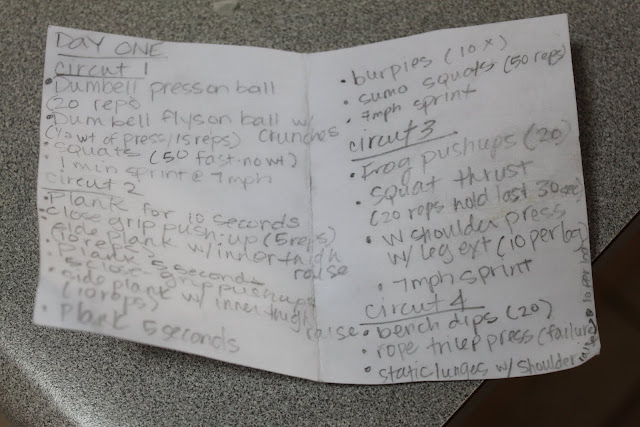 DAY ONE
circut 1
• Dumbell press on ball
(20 reps)
• Dumbell flys on ball w/
(1/2 wt of press/15 reps) crunches
• squats (50 fast-no wt)
• 1 min sprint @ 7mph
circut 2
• Plank for 10 seconds
• close grip push-up (5 reps)
• side plank w/ inner thigh
(10 reps) raise
• Plank 5 seconds
• close grip pushups
• side plank w/ inner thigh
(10 reps) raise
• Plank 5 seconds
• burpies (10x)
• sumo squats (50 reps)
• 7mph sprint
circut 3
• Frog pushups (20)
• squat thrust
(20 reps hold last 30 sec)
• W shoulder press
w/ leg ext (10 per leg)
• 7mph sprint
circut 4
• bench dips (20)
• rope tricep press (failure)
• static lunges w/ shoulder